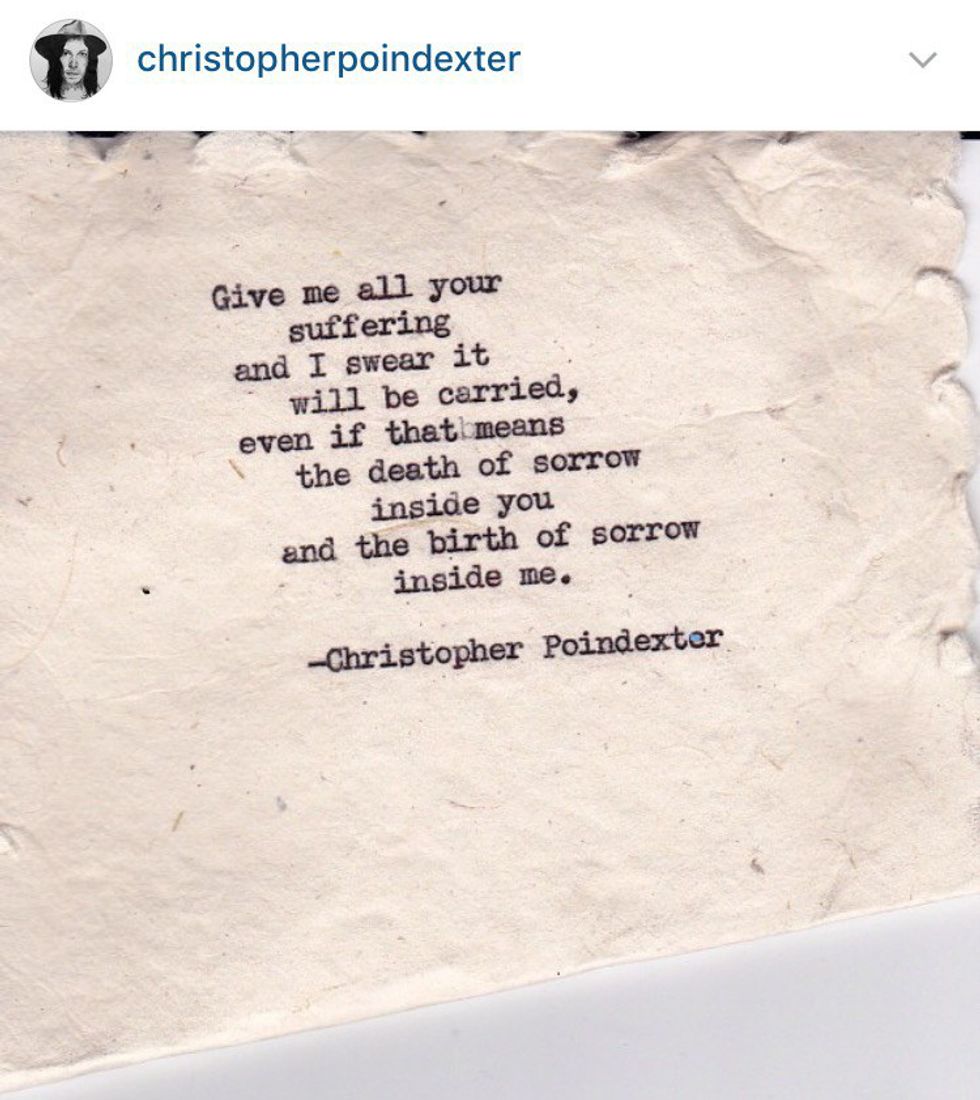 christopherpoindexter
Give me all your
suffering
and I swear it
will be carried,
even if that means
the death of sorrow
inside you
and the birth of sorrow
inside me.
-Christopher Poindexter